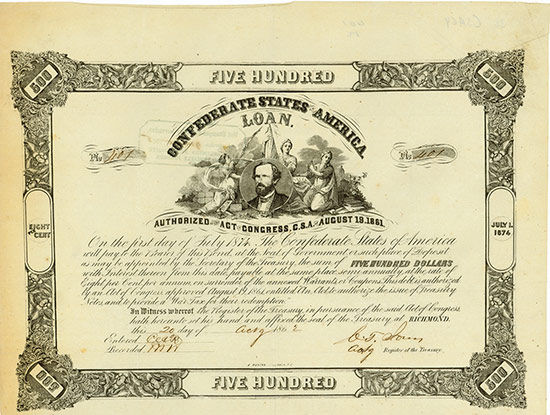 500 FIVE HUNDRED 500
CONFEDERATE STATES AMERICA
LOAN.
No No
AUTHORIZED ACT OF CONGRESS, C.S.A. AUGUST 19. 1861.
EIGHT PER CENT
JULY 1. 1874
On the first day of July 1874, The Confederate States of America
will pay to the Bearer of this Bond, at the seat of Government or such place of Deposit
as may be appointed by the Secretary of the Treasury the sum of FIVE HUNDRED DOLLARS
with Interest thereon from this date, payable at the same place semi annually, at the rate of
Eight per Cent per annum, on surrender of the annexed Warrants or Coupons. This debt is authorized
by an Act of Congress approved August 19, 1861, entitled "An Act to authorize the issue of Treasury
Notes, and to provide a War Tax for their redemption."
In Witness whereof the Register of the Treasury, in pursuance of the said Act of Congress
hath hereunto set his hand and affixed the seal of the Treasury at RICHMOND,
this 20 day of Aug 1862
Entered
Recorded Register of the Treasury.
500 FIVE HUNDRED 500